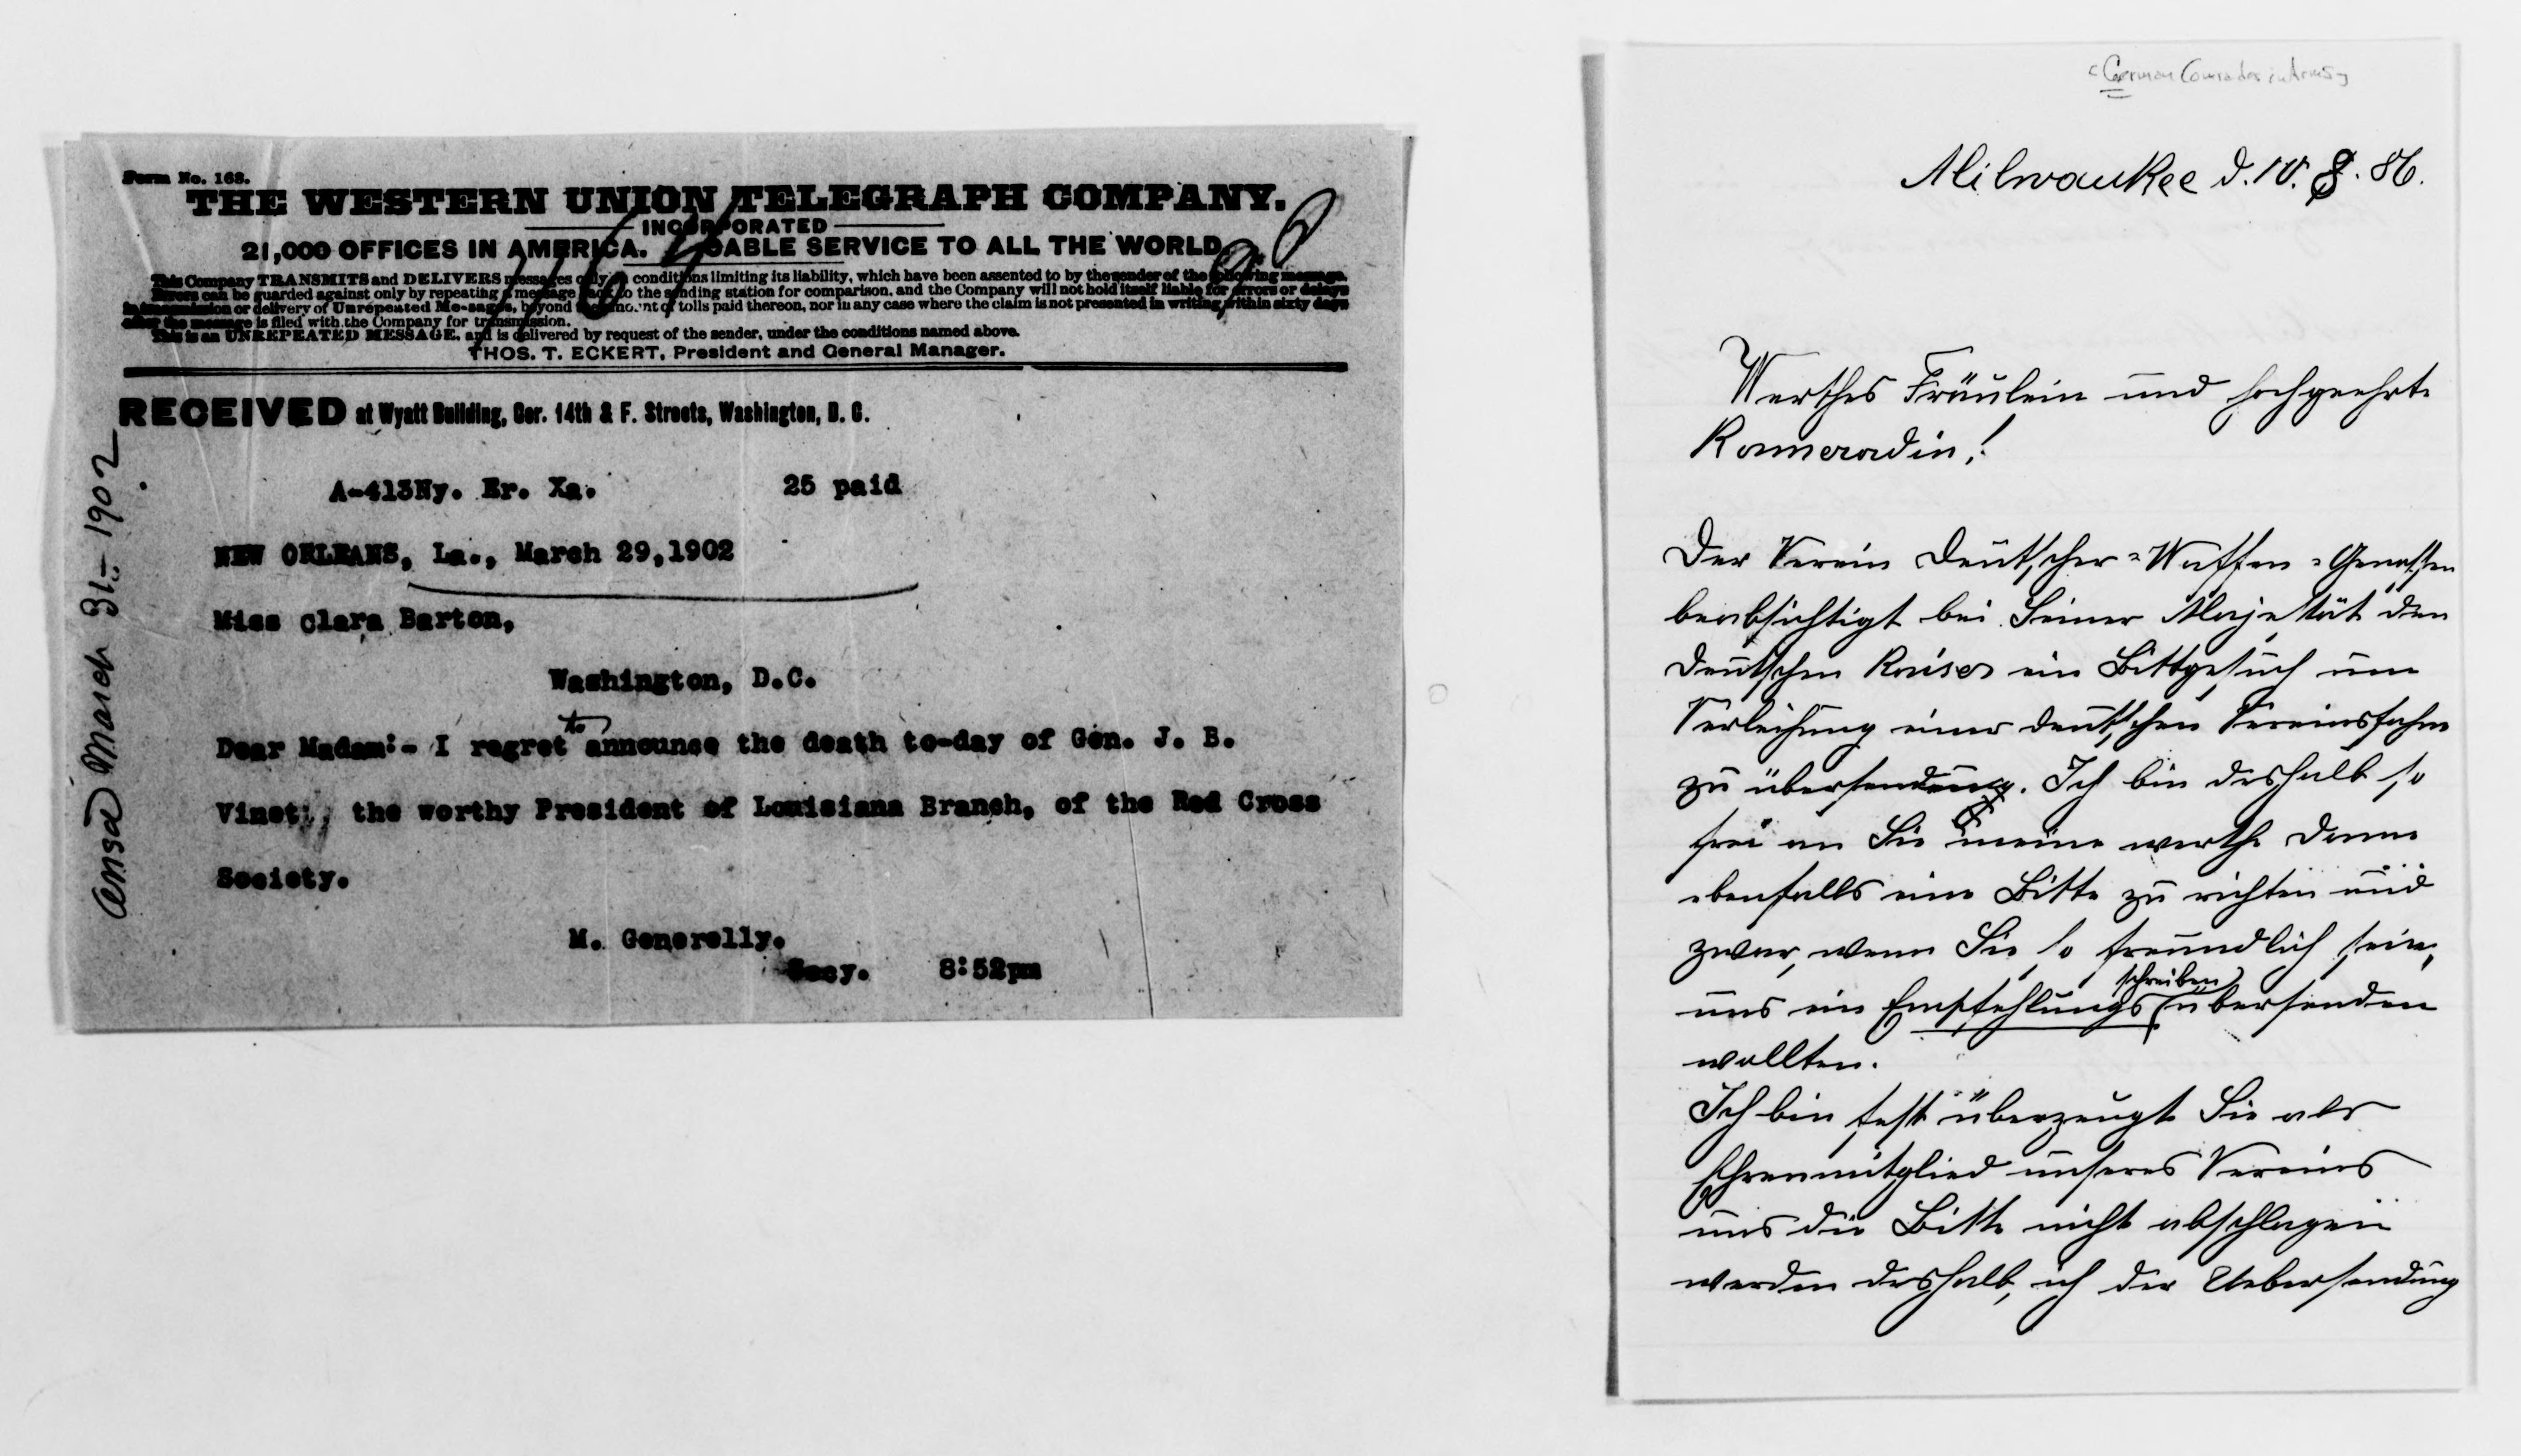 Form No. 168.
THE WESTERN UNION TELEGRAPH COMPANY.
INCORPORATED
21,000 OFFICES IN AMERICA. CABLE SERVICE TO ALL THE WORLD.
This Company TRANSMITS and DELIVERS messages only on conditions limiting its liability, which have been assented to by the sender of the following message.
Errors can be guarded against only by repeating a message back to the sending station for comparison, and the Company will not hold itself liable for errors or delays
in transmission or delivery of Unrepeated Messages, beyond the amount of tolls paid thereon, nor in any case where the claim is not presented in writing within sixty days
after the message is filed with the Company for transmission.
This is an UNREPEATED MESSAGE, and is delivered by request of the sender, under the conditions named above.
THOS. T. ECKERT, President and General Manager.
RECEIVED at Wyatt Building, Cor. 14th & F. Streets, Washington, D. C.
A-413Ny. Er. Xa. 25 paid
NEW ORLEANS, La., March 29,1902
Miss Clara Barton,
Washington, D.C.
to
Dear Madam:- I regret announce the death to-day of Gen. J. B.
Vinet, the worthy President of Louisiana Branch, of the Red Cross
Society.
M. Generelly.
Secy. 8:52pm
Ansd March 31-- 1902
German Comrades in Arms
Milwaukee d. 10. 8. 86.
Werthes Fräulein und hochgeehrte
Kameradin!
Der Verein Deutscher-Waffen-Genossen
beabsichtigt bei Seiner Majestät den
Deutschen Kaiser ein Bittgesuch um
Verleihung einer deutschen Vereinsfahne
zu übersenden. Ich bin deshalb so
frei an Sie meine werthe Dame
ebenfalls eine Bitte zu richten und
zwar, wenn Sie so freundlich sein,
schreiben
uns ein Empfehlungs übersenden
wollten.
Ich bin fest überzeugt Sie als
Ehrenmitglied unseres Vereins
uns die Bitte nicht abschlagen
werden deshalb, ich der Uebersendung